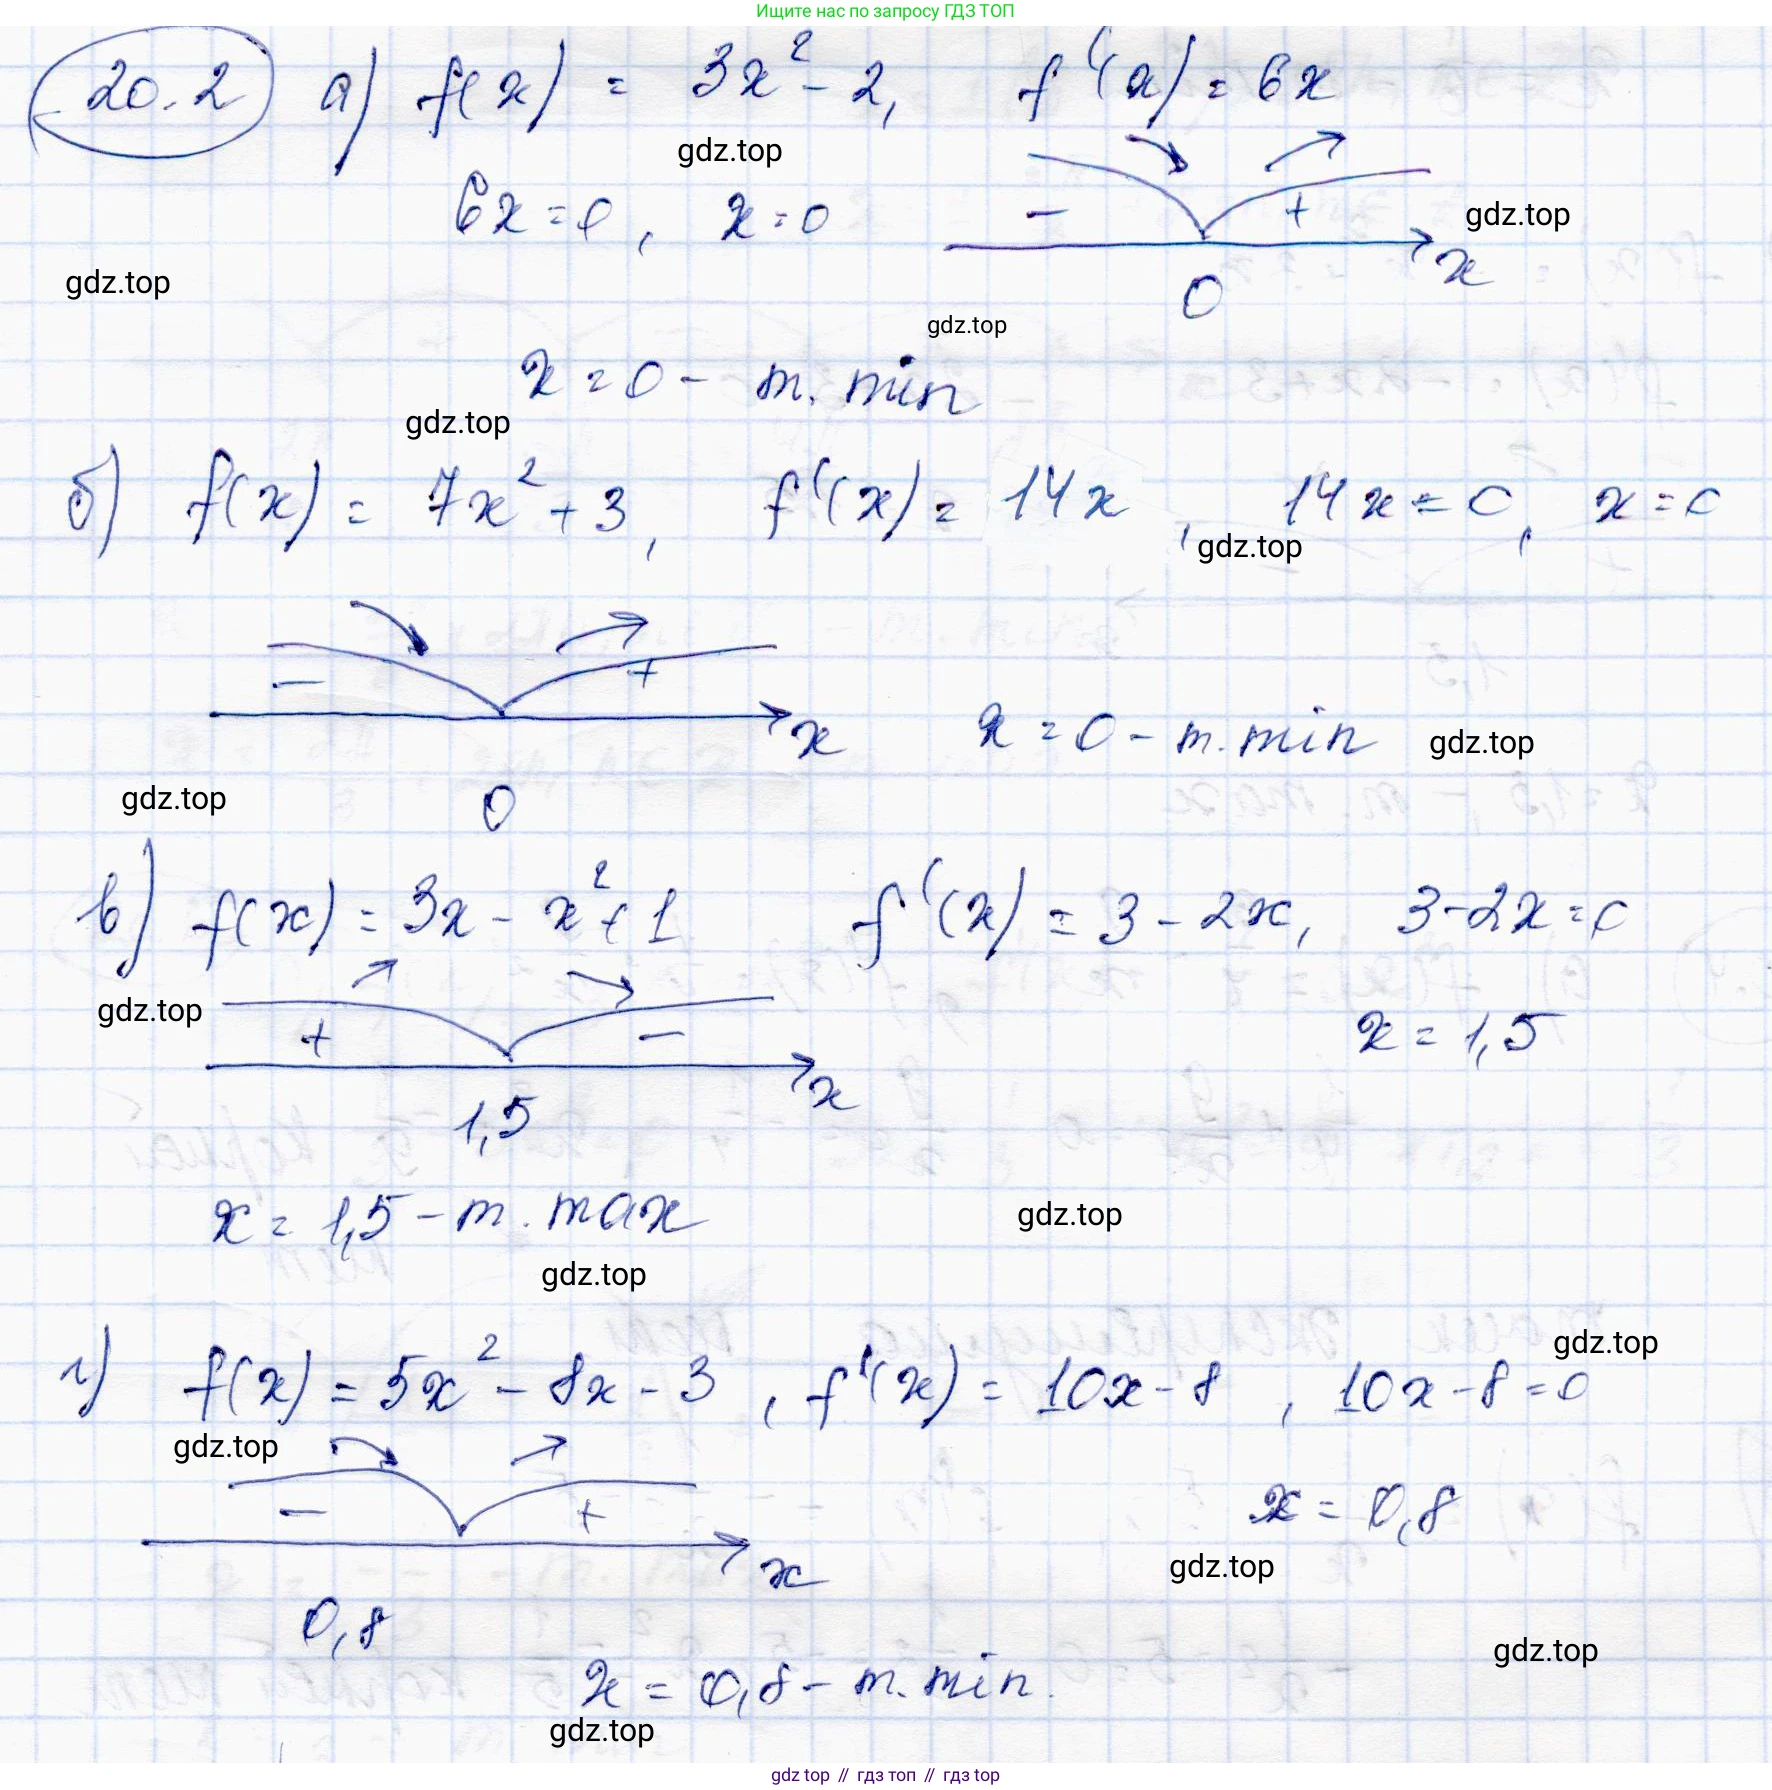 Ищите нас по запросу ГДЗ ТОП
20.2 а) f(x) = 3x² - 2, f'(x) = 6x
gdz.top
6x = 0, x = 0 - + x
gdz.top
gdz.top
0
gdz.top
x = 0 - т. min
gdz.top
б) f(x) = 7x² + 3, f'(x) = 14x, 14x = 0, x = 0
gdz.top
- + x
x = 0 - т. min gdz.top
gdz.top 0
в) f(x) = 3x - x² + 1 f'(x) = 3 - 2x, 3 - 2x = 0
gdz.top
+ - x
x = 1,5
1,5
x = 1,5 - т. max
gdz.top
gdz.top
gdz.top
г) f(x) = 5x² - 8x - 3, f'(x) = 10x - 8, 10x - 8 = 0
gdz.top
- + x
x = 0,8
gdz.top
0,8
gdz.top
x = 0,8 - т. min.
gdz.top
gdz top // гдз топ // гдз top